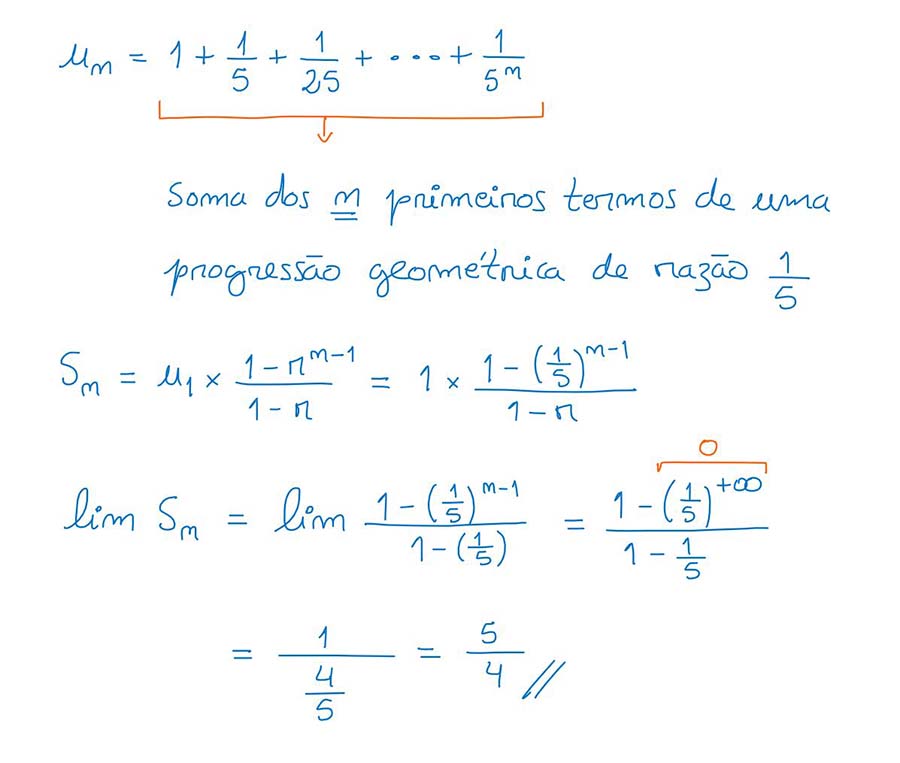 u_n = 1 + 1/5 + 1/25 + ... + 1/5^n
Soma dos n primeiros termos de uma
progressão geométrica de razão 1/5
S_n = u_1 × (1 - r^(n-1))/(1 - r) = 1 × (1 - (1/5)^(n-1))/(1 - r)
0
lim S_n = lim (1 - (1/5)^(n-1))/(1 - (1/5)) = (1 - (1/5)^(+∞))/(1 - 1/5)
= 1/(4/5) = 5/4 //